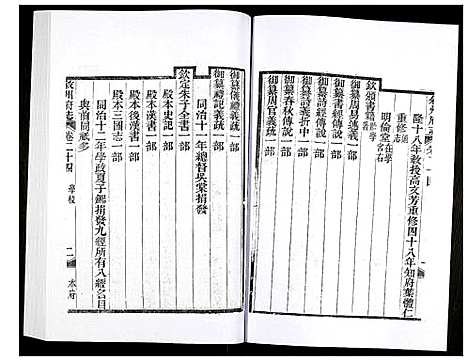 隆十八年教授高文芳重修四十八年知府葉體仁
重修通志
明倫堂在學宮右
欽頒書籍貯於學
御纂周易述義一部
御纂書經傳說一部
御纂詩經傳說一部
御纂詩義折中一部
御纂春秋傳說一部
御纂周官義疏一部
御纂儀禮義疏一部
御纂禮記義疏一部
同治十一年總督吳棠捐發
欽定朱子全書一部
殿本史記一部
殿本漢書一部
殿本後漢書一部
殿本三國志一部
同治十二年學政夏子鍚捐發九經所有八經名目
與前同祇多
敘州府志 卷二十四 學校 二 本府